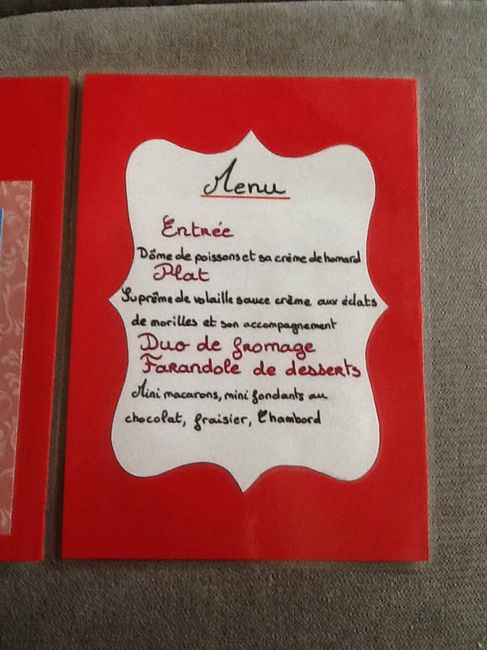 Menu
Entrée
Dôme de poissons et sa crème de homard
Plat
Suprême de volaille sauce crème aux éclats
de morilles et son accompagnement
Duo de fromage
Farandole de desserts
Mini macarons, mini fondants au
chocolat, fraisier, Chambord